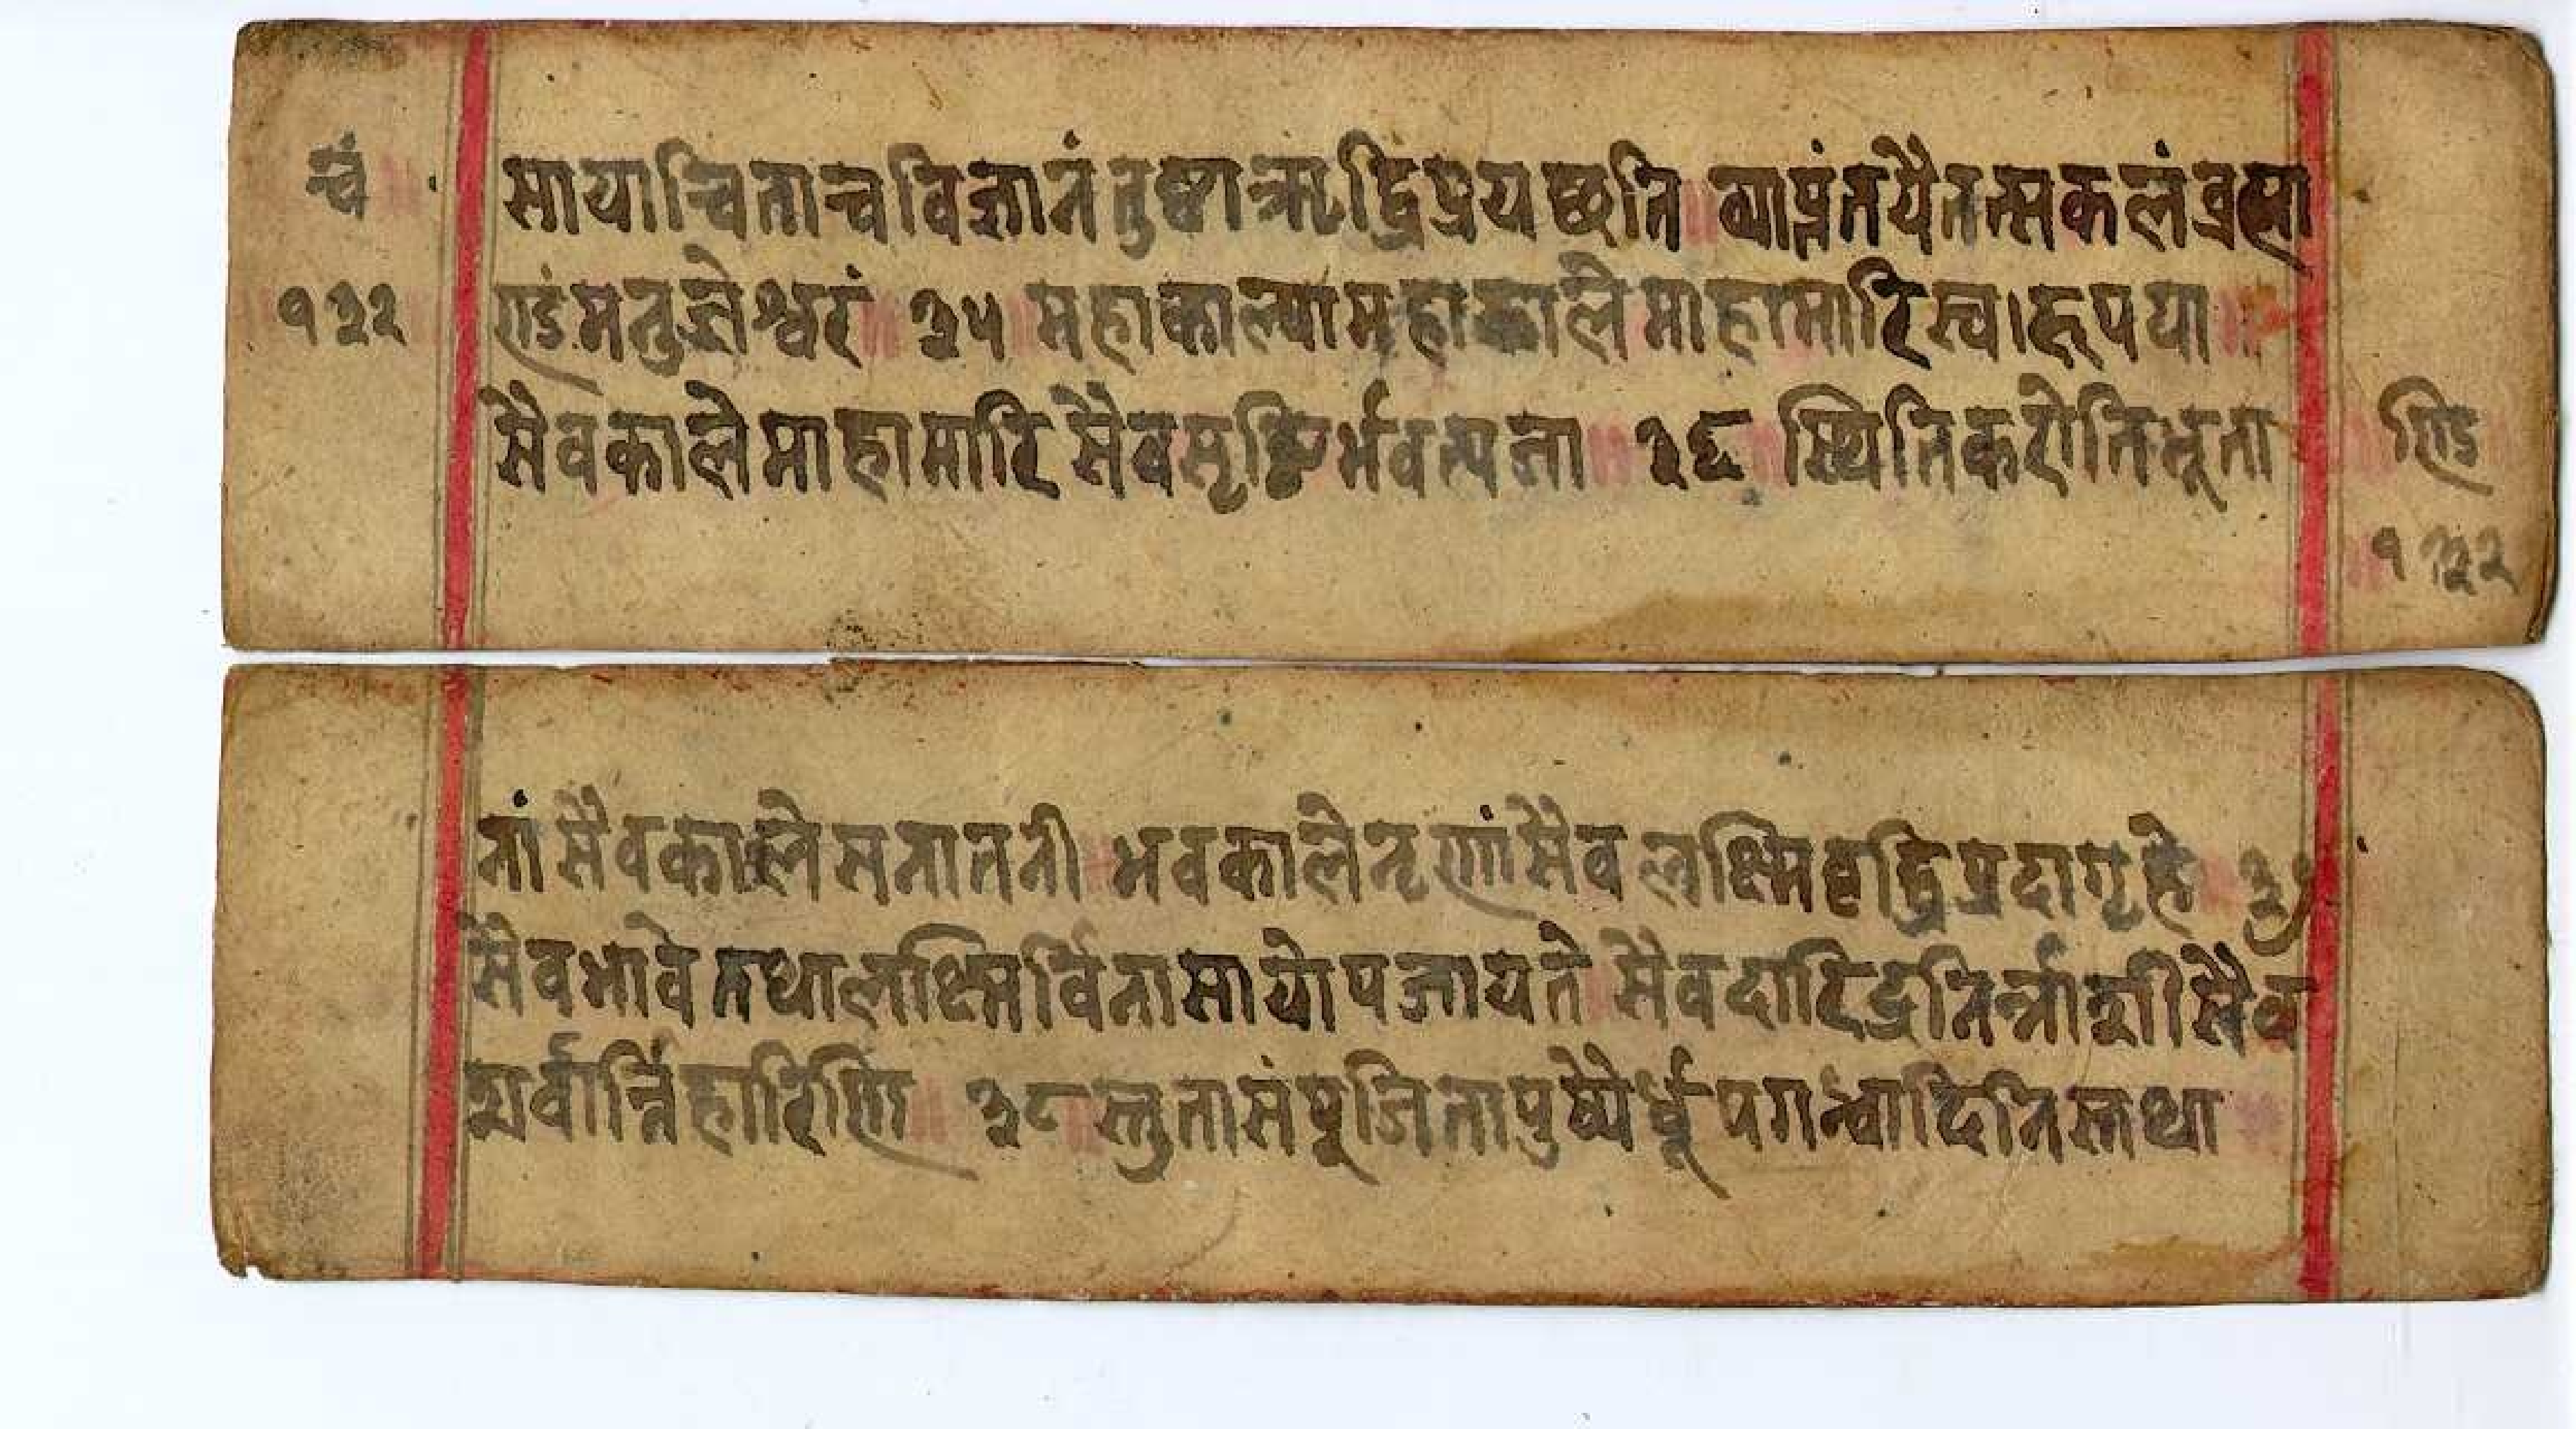 चं
१३२
सायाच्चिताच्चविज्ञानं तुष्टाऋद्धिप्रयछति ॥ व्याप्तंतयैतत्सकलंव्रह्मा
ण्डंमनुजेश्वरं ॥ ३५ ॥ महाकाल्यामहाकाले माहामारिस्वारूपया ॥
सैवकाले माहामारि सैवसृष्टिर्भवत्यजा ॥ ३६ ॥ स्थितिकरोतिभूता
ण्डि
१३२
नां सैवकाले सनातनी ॥ भवकाले नृणांसैव लक्ष्मिवृद्धिप्रदागृहे ॥ ३७
सैवभावे तथालक्ष्मिर्विनासायोपजायते ॥ सैवदारिद्रनिर्न्नाशीसैव
शर्वार्त्तिहारिणि ॥ ३८ ॥ स्तुतासंपूजितापुष्पैर्धूपगन्धादिनिस्तथा ॥